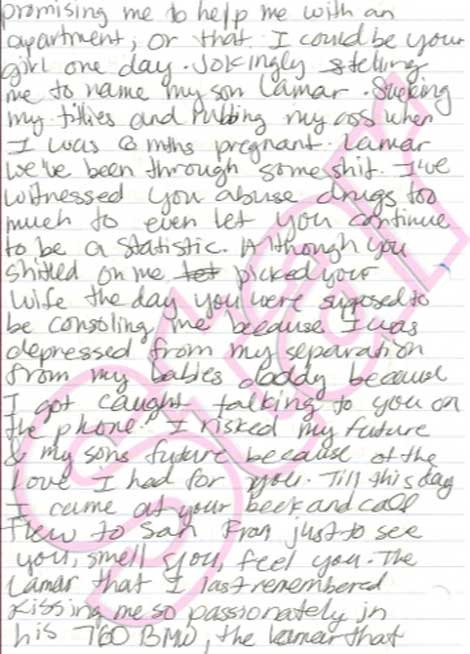 promising me to help me with an
apartment, or that I could be your
girl one day. Jokingly telling
me to name my son Lamar. Sucking
my titties and rubbing my ass when
I was 8 mths pregnant. Lamar
we've been through some shit. I've
witnessed you abuse drugs too
much to even let you continue
to be a statistic. Although you
shitted on me picked your
wife the day you were suposed to
be consoling me because I was
depressed from my separation
from my babies daddy because
I got caught talking to you on
the phone. I risked my future
& my sons future because of the
Love I had for you. Till this day
I came at your beck and call
flew to San Fran just to see
you, smell you, feel you. The
Lamar that I last remembered
kissing me so passionately in
his 760 BMW, the Lamar that
Star